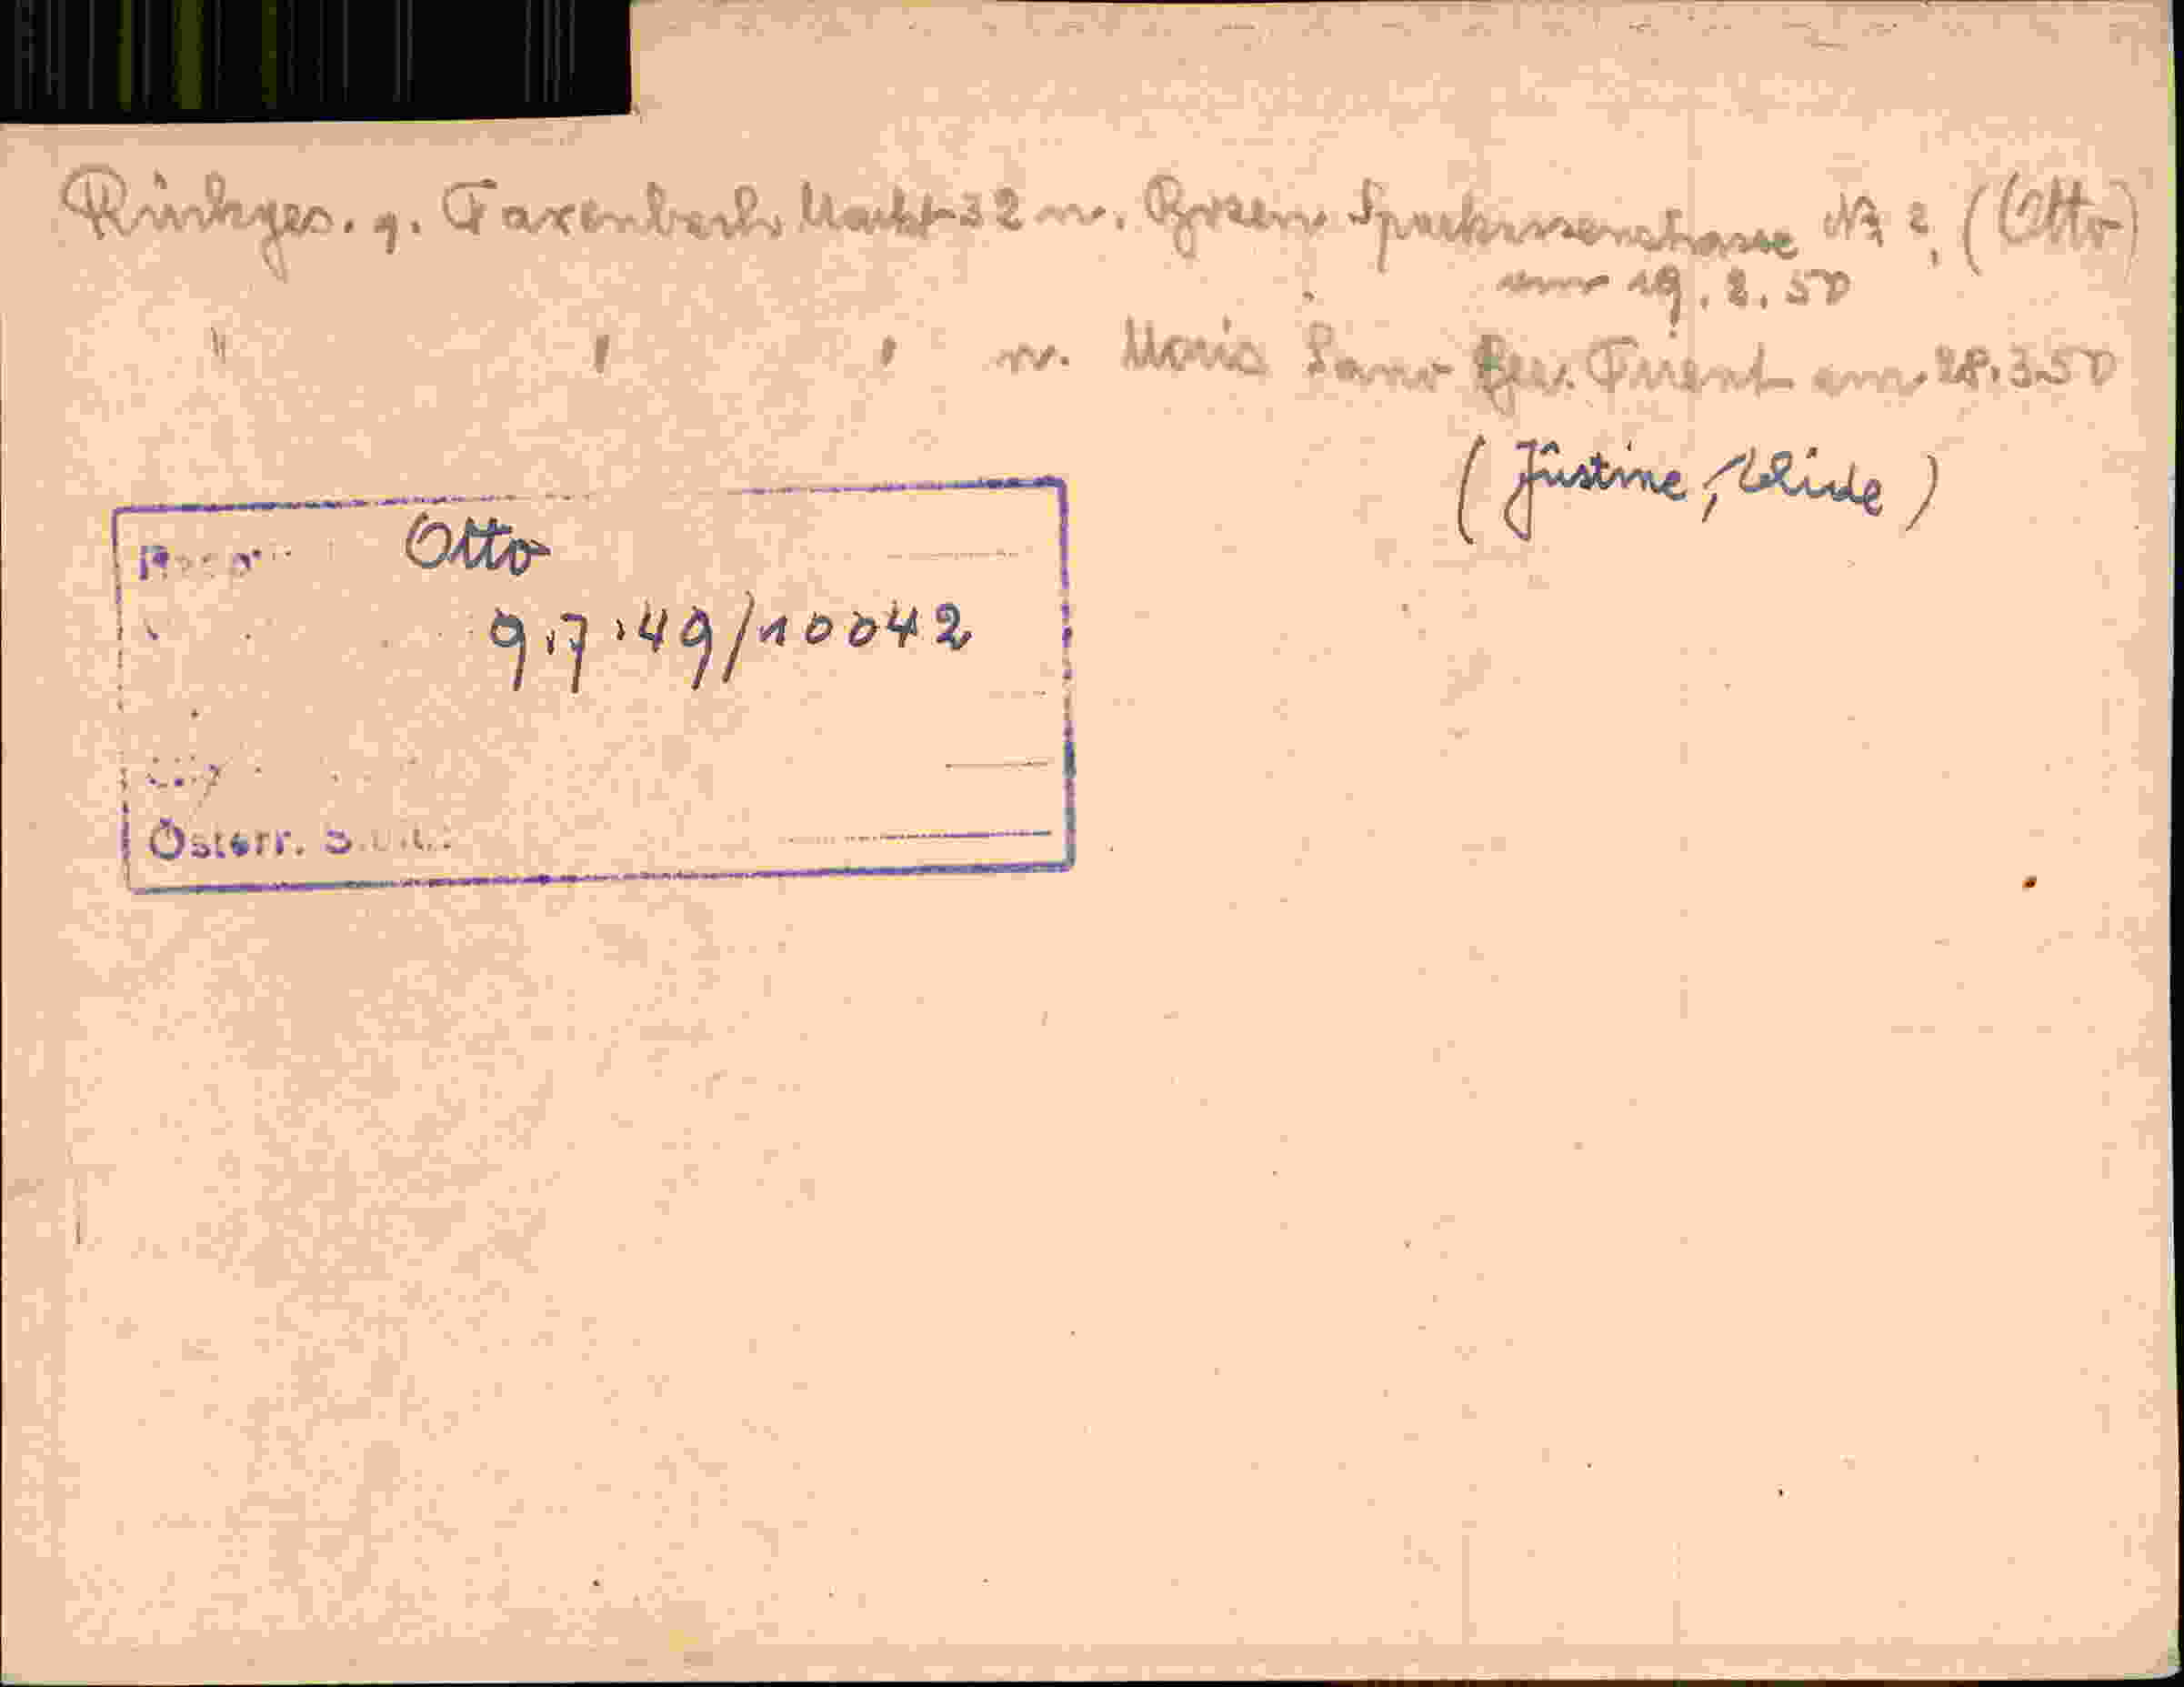 Rückges. q. Taxenbach Markt 32 n. Bozen Sparkassenstrasse Nr 2, (Otto)
am 19.2.50
" " " n. Moris Sano Bez. Trient am 28.3.50
(Justine,
Otto
9.7.49/10042
Österr.